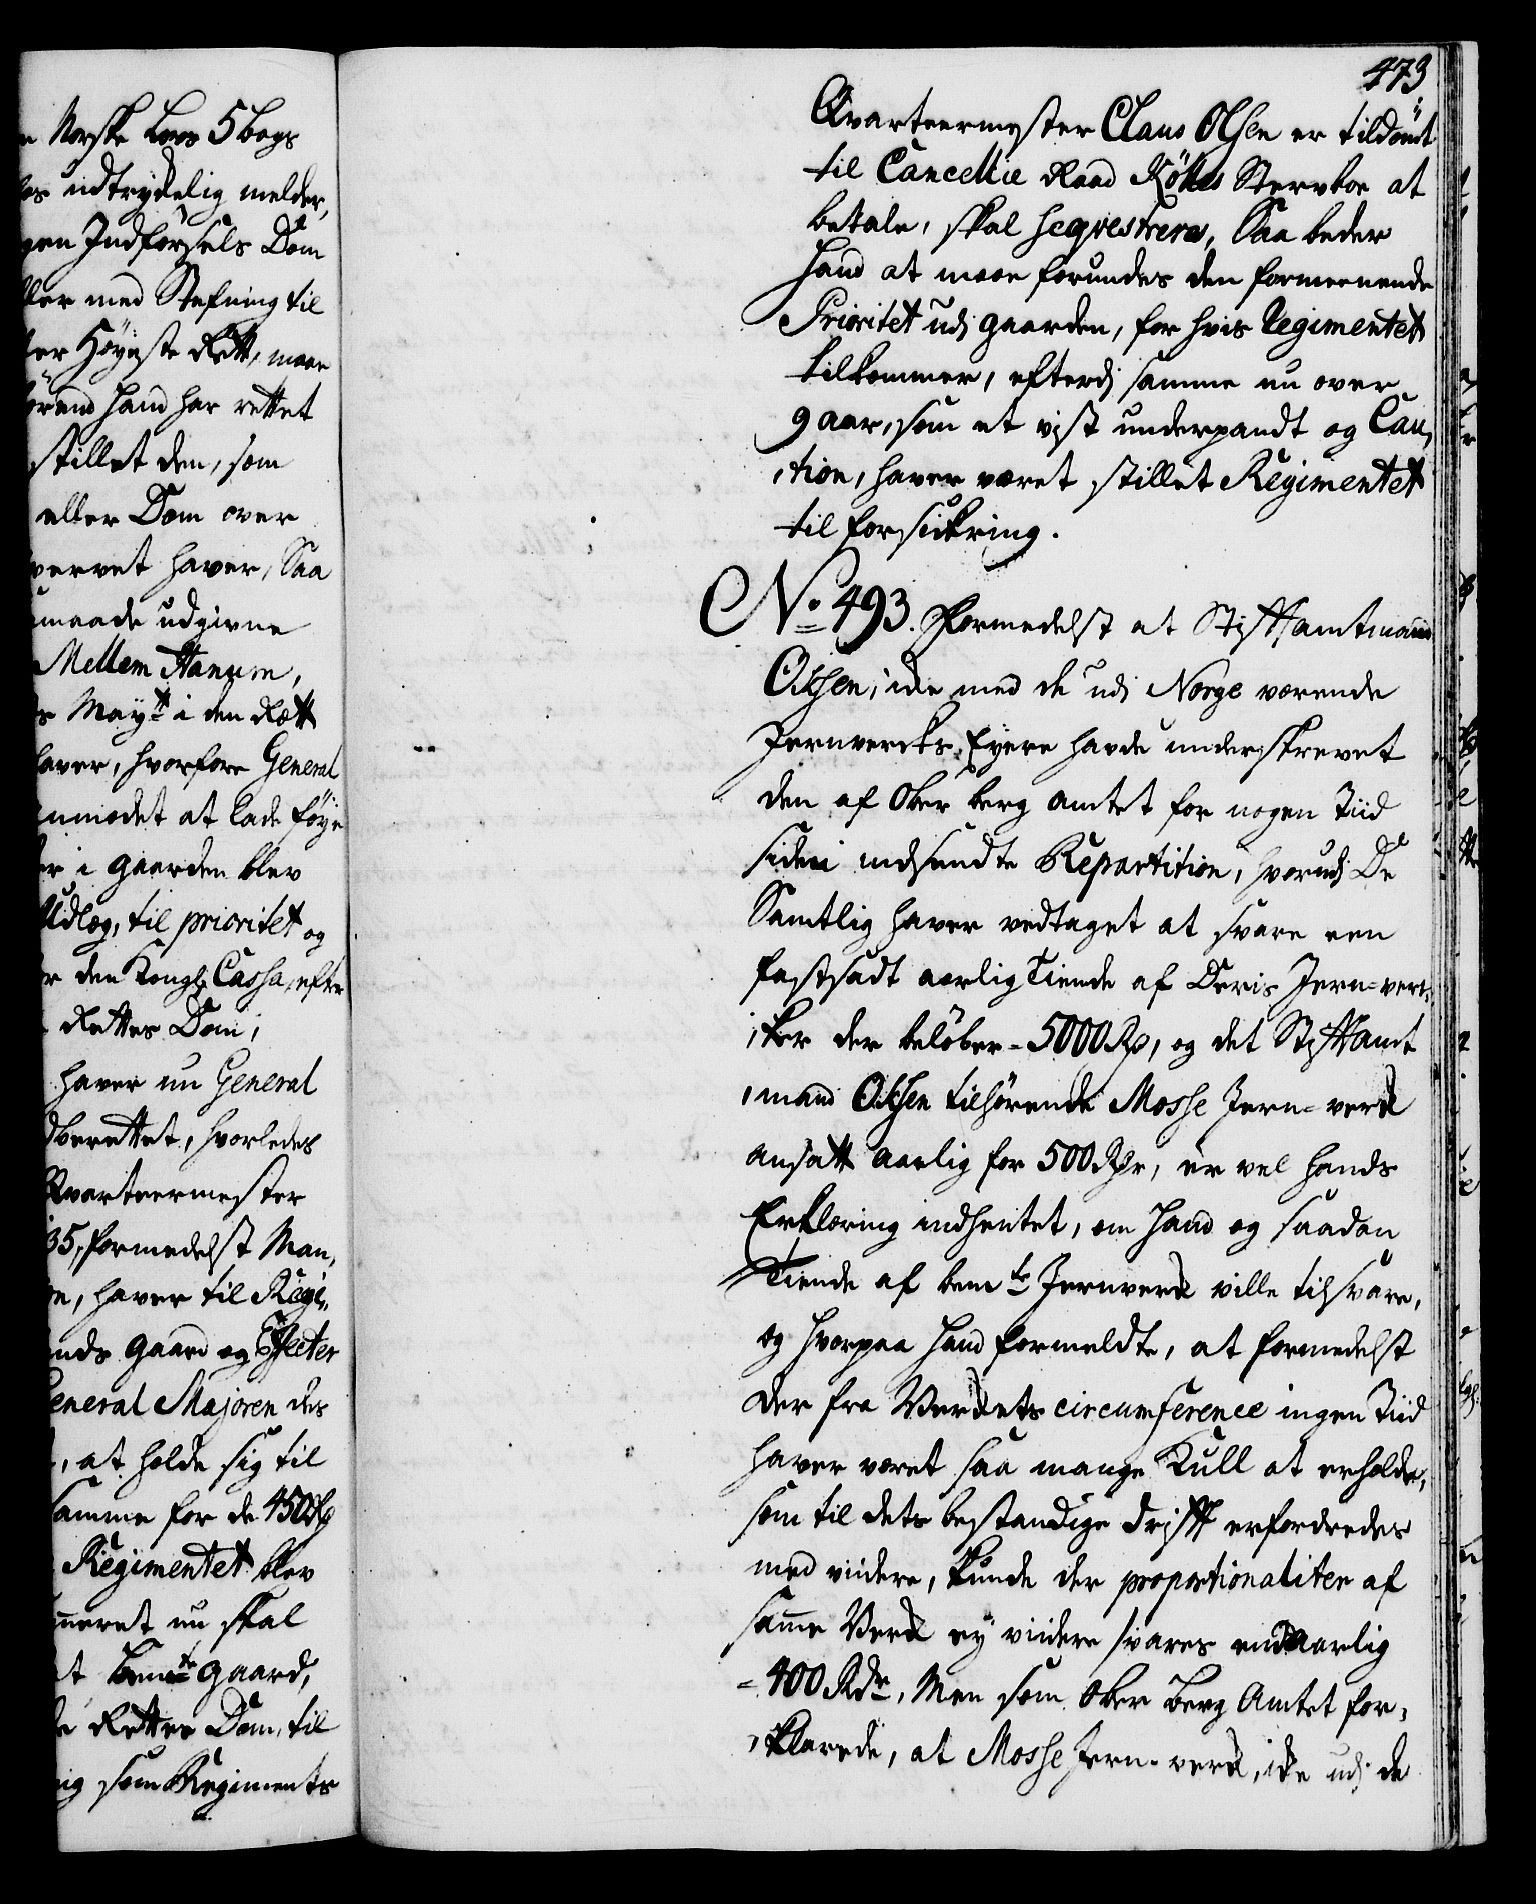 n Norske Lovs 5 bogs
es udtrykelig melder,
gen Indførsels Dom
ller med Stefning til
ter Höyeste Rett, maae
örend hand har rettet
stillet den, som
eller Dom over
vervet haver, Saa
maade udgivne
Mellem Hannem,
s Mayt i den Rett
haver, hvorfore General
nmodet at lade föye
er i gaarden blev
Udlæg, til prioritet og
r den Kongl. Cassa, efter
Rettes Dom;
haver nu General
dberettet, hvorledes
Qvarteermester
35, formedelst Man,
n, haver til Regi,
nds gaard og Effecter
General Majoren des
, at holde sig til
samme for de 450 Rd
Regimentet blev
neret nu skal
t bemte gaard,
e Rettes Dom, til
ig som Regiments
473
Qvarteermester Claus Olsen er tildömt
til Cancellie Raad Röllers Stervboe at
betale, skal seqvestreres, Saa beder
Hand at maae forundes den formeenende
Prioritet udj gaarden, for hvis Regimentet
tilkommer, efterdj samme nu over
9 aar, som et vist underpandt og Cau,
,tion, haver været stillet Regimentet
til forsickring.
No. 493. Formedelst at Stiftamtmand
Ochsen, icke med de udj Norge værende
Jernvercks Eyere havde underskrevet
den af Ober berg amtet for nogen Tiid
siden indsendte Repartition, hvorudj De
Samtlig haver vedtaget at svare een
fastsadt aarlig Tiende af Deris Jern-ver,
,ker der belöber - 5000 Rd, og det Stiftamt
,mand Ochsen tilhörende Mosse Jern-verck
ansatt aarlig for 500 Rdr, er vel hands
Erklæring indhentet, om Hand og saadan
Tiende af bemte Jernverck ville tilsvare,
og hvorpaa Hand formeldte, at formedelst
der fra Verckets circumference ingen Tiid
haver været saa mange Kull at erholde,
som til dets bestandige Drift erfordredes
med videre, kunde der proportionaliter af
samme Verck ey videre svares end aarlig
- 400 Rdr, Men som Ober Berg Amtet for,
,klarede, at Mosse Jern-verck, icke udj de